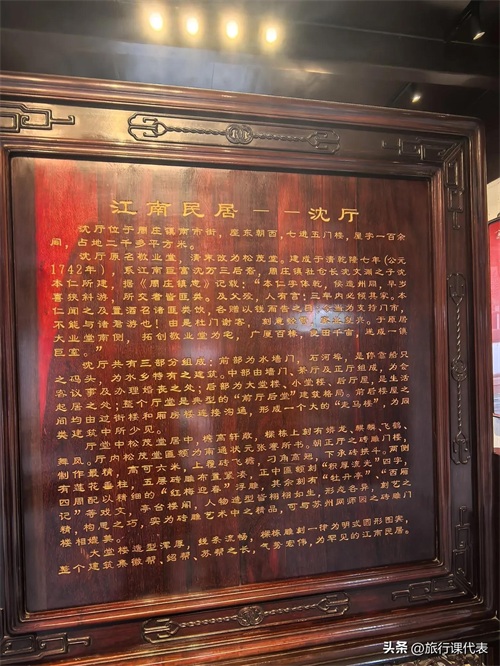 江南民居——沈厅
沈厅位于周庄镇南市街，座东朝西，七进五门楼，屋宇一百余
间，占地二千多平方米。
沈厅原名敬业堂，清末改为松茂堂。建成于清乾隆七年（公元
1742年），系江南巨富沈万三后裔，周庄镇社仓长沈文渊之子沈
本仁所建，据《周庄镇志》记载：“本仁字体乾，侯选州同，早岁
喜狭斜游，所交者皆匪类。及父殁，人有言：三年内必倾其家。本
仁闻之及置酒召诸匪类饮，各赠以钱而告之曰
不能与诸君游也！由是杜门谢客，刻意
大业堂南侧，拓创敬业堂为宅，广厦百椽，良田千亩，遂成一镇
巨室。”
沈厅共有三部分组成：前部为水墙门、石河埠，是停靠船只
之码头，为水乡特有之建筑。中部由墙门、茅厅及正厅组成，为会
客议事及办理婚丧之处；后部为大堂楼、小堂楼、后厅屋，是生活
起居之处；整个厅堂是典型的“前厅后堂”建筑格局。前后楼屋之
间均由过街楼和厢房搭连接沟通，形成一个大的“走马楼”，为同
类建筑中所少见。
厅堂中松茂堂居中，椀高轩敞，棵栋上刻有蟒龙、麒麟、飞鹤、
舞凤。厅内松茂堂匾额为南通状元张謇所书。朝正厅之砖雕门楼，
制作最精，高可六米，上覆砖飞檐，刁角高翘，下承砖拱斗。两侧
有四莲垂柱，五层砖雕布置紧凑，正中匾额刻“积厚流光”四字，
四周配以精细的“红梅迎春”浮雕，其余刻有“牡丹亭”、“西厢
记”等戏文，亭台楼阁，人物造型皆栩栩如生，形态各异，刻艺之
精，构思之巧，实为砖雕艺术中之精品，可与苏州网师园之砖雕门
楼相媲美。
大堂楼造型浑厚，线条流畅，棵栋雕刻一律为明式圆形图案，
整个建筑集徽帮、绍帮、苏帮之长，气势宏伟，为罕见的江南民居。
头条 @旅行课代表